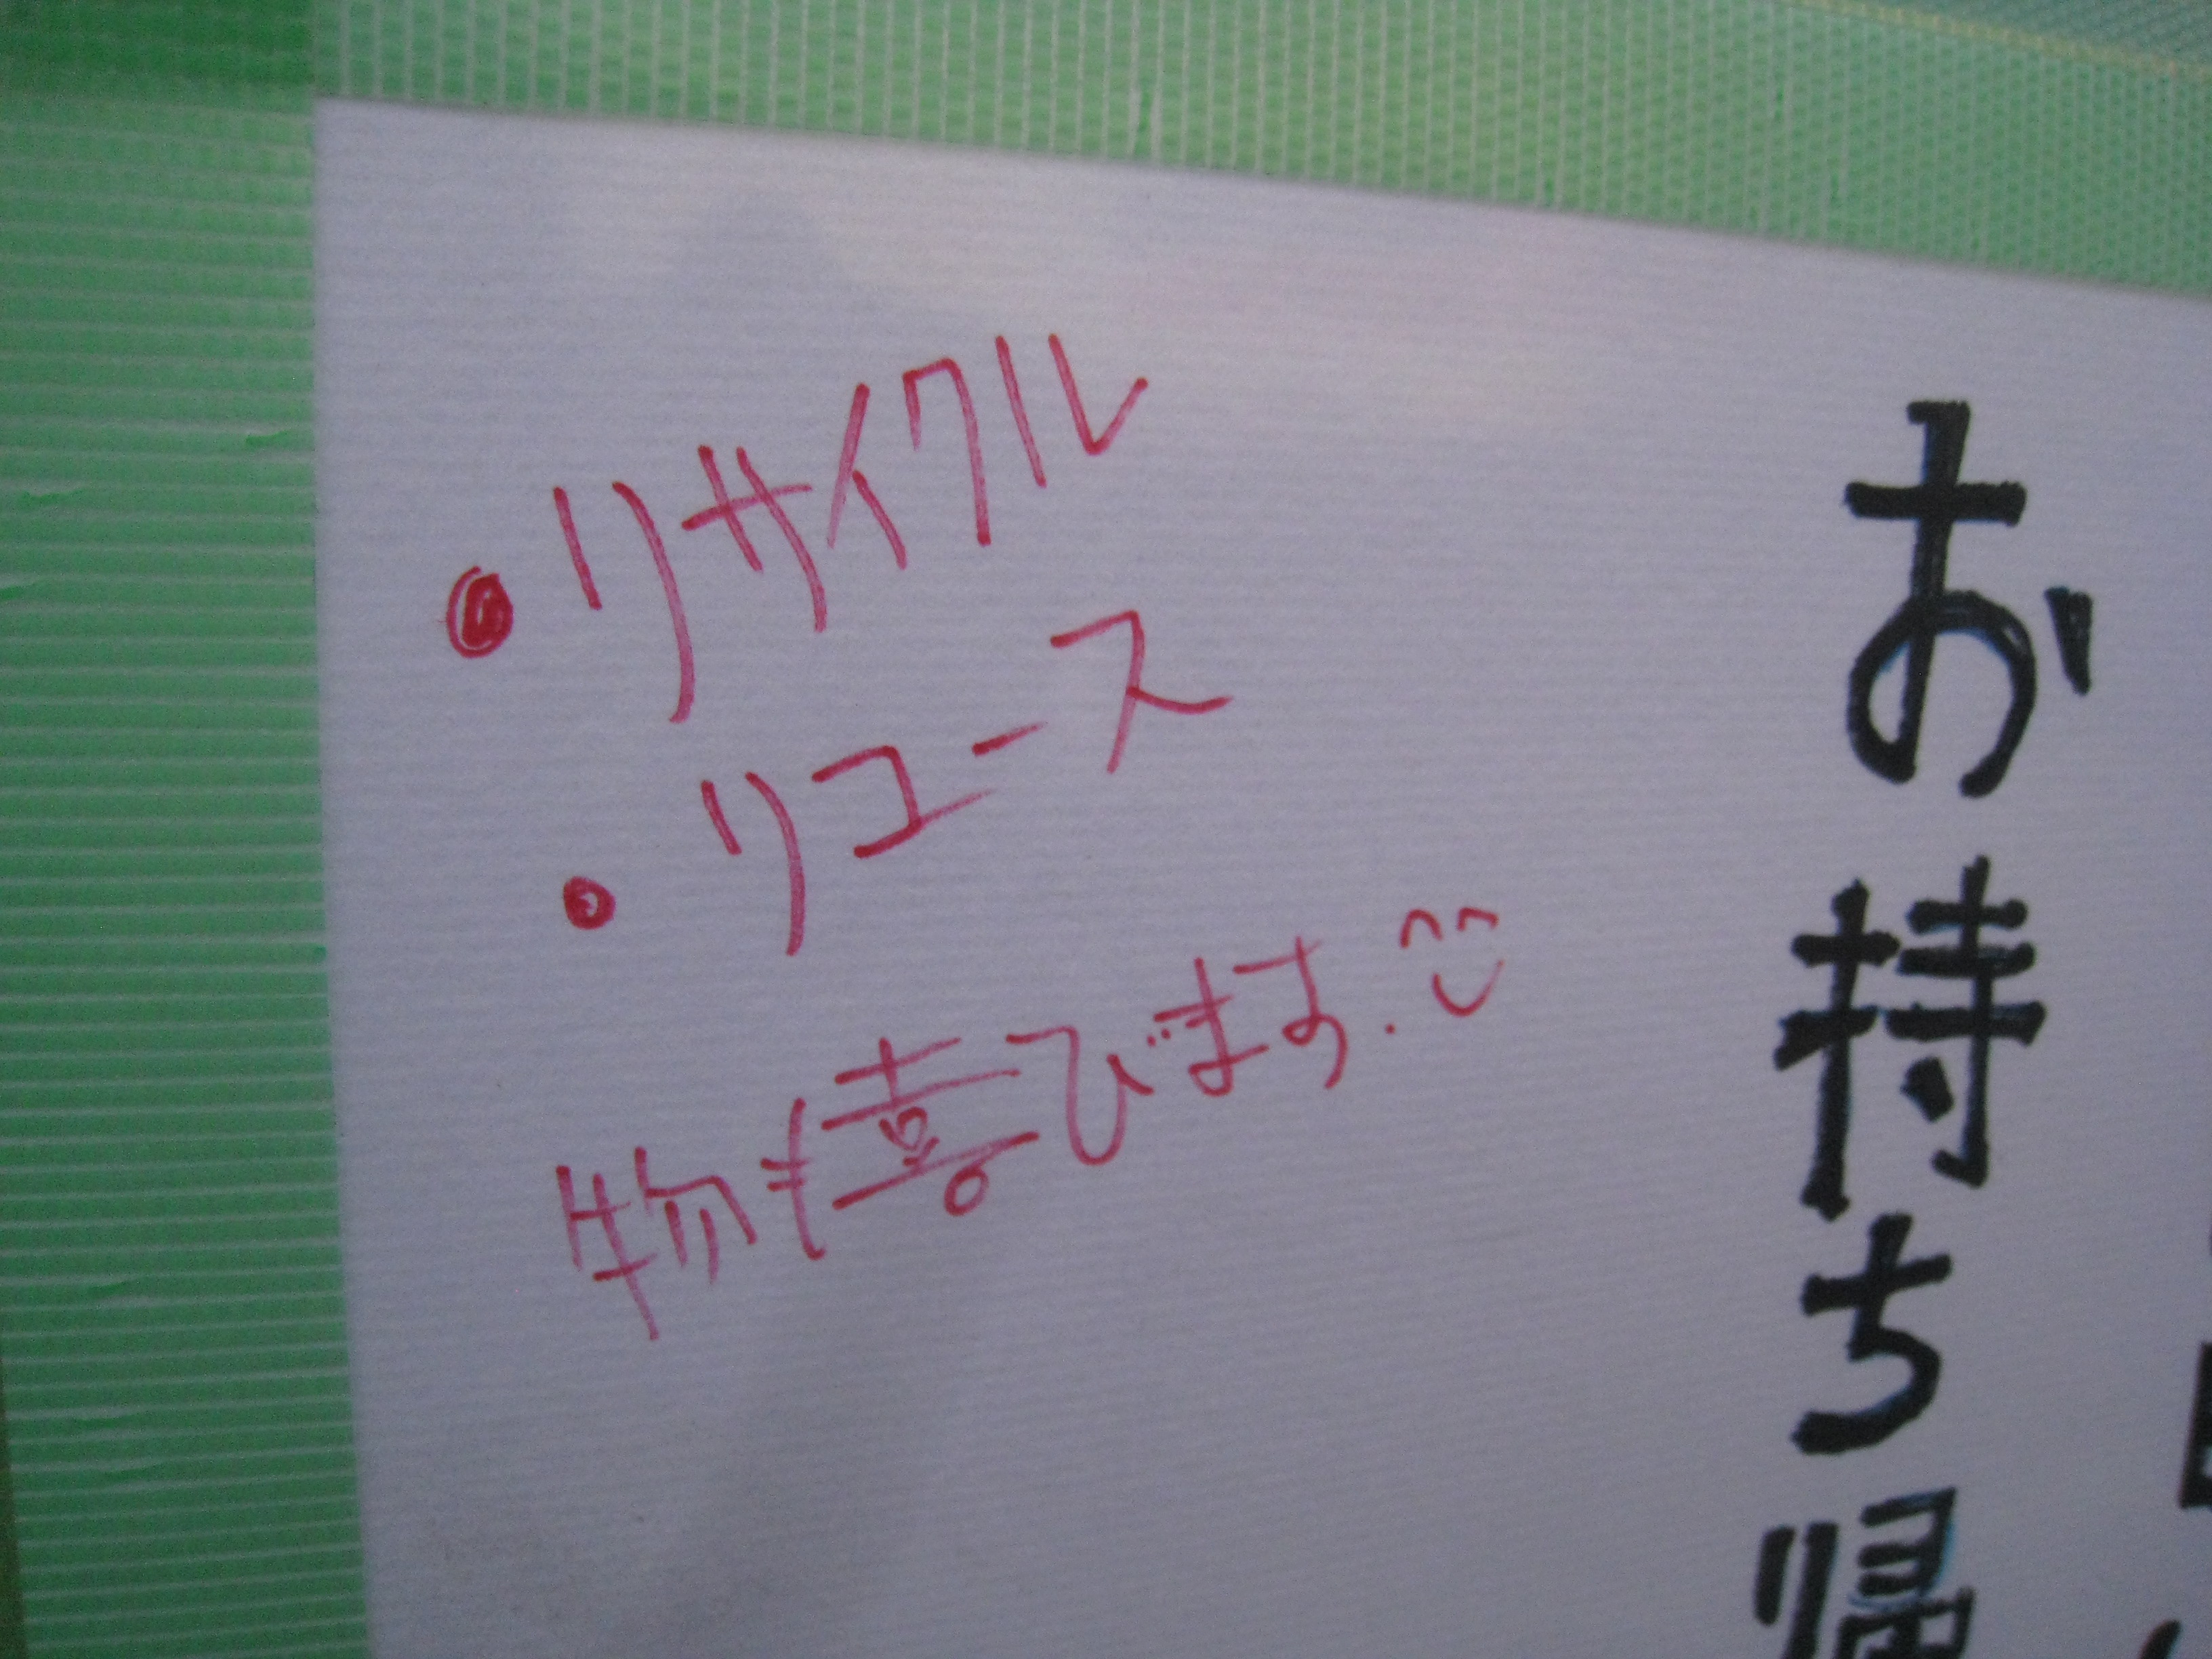 お持ち帰
・リサイクル
・リユース
物も喜びます.